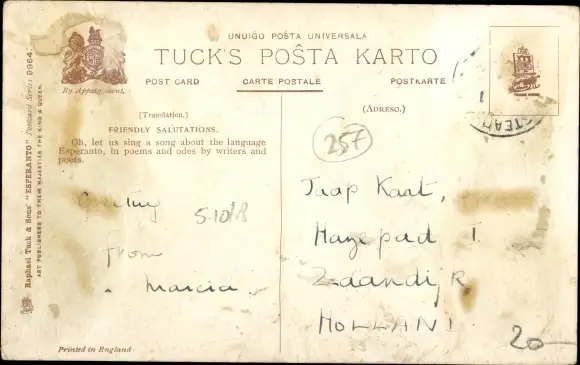 UNUIĜO POŜTA UNIVERSALA
TUCK'S POŜTA KARTO
POST CARD CARTE POSTALE POSTKARTE
By Appointment.
Raphael Tuck & Sons' "ESPERANTO" Postcard Series 9964
ART PUBLISHERS TO THEIR MAJESTIES THE KING & QUEEN.
(Translation.)
FRIENDLY SALUTATIONS.
Oh, let us sing a song about the language
Esperanto, in poems and odes by writers and
poets.
Greeting
5-10/8
from
Marcia.
Printed in England.
(ADRESO.)
257
Jaap Kaat,
Hazepad I
Zaandijk
HOLLAND
20-